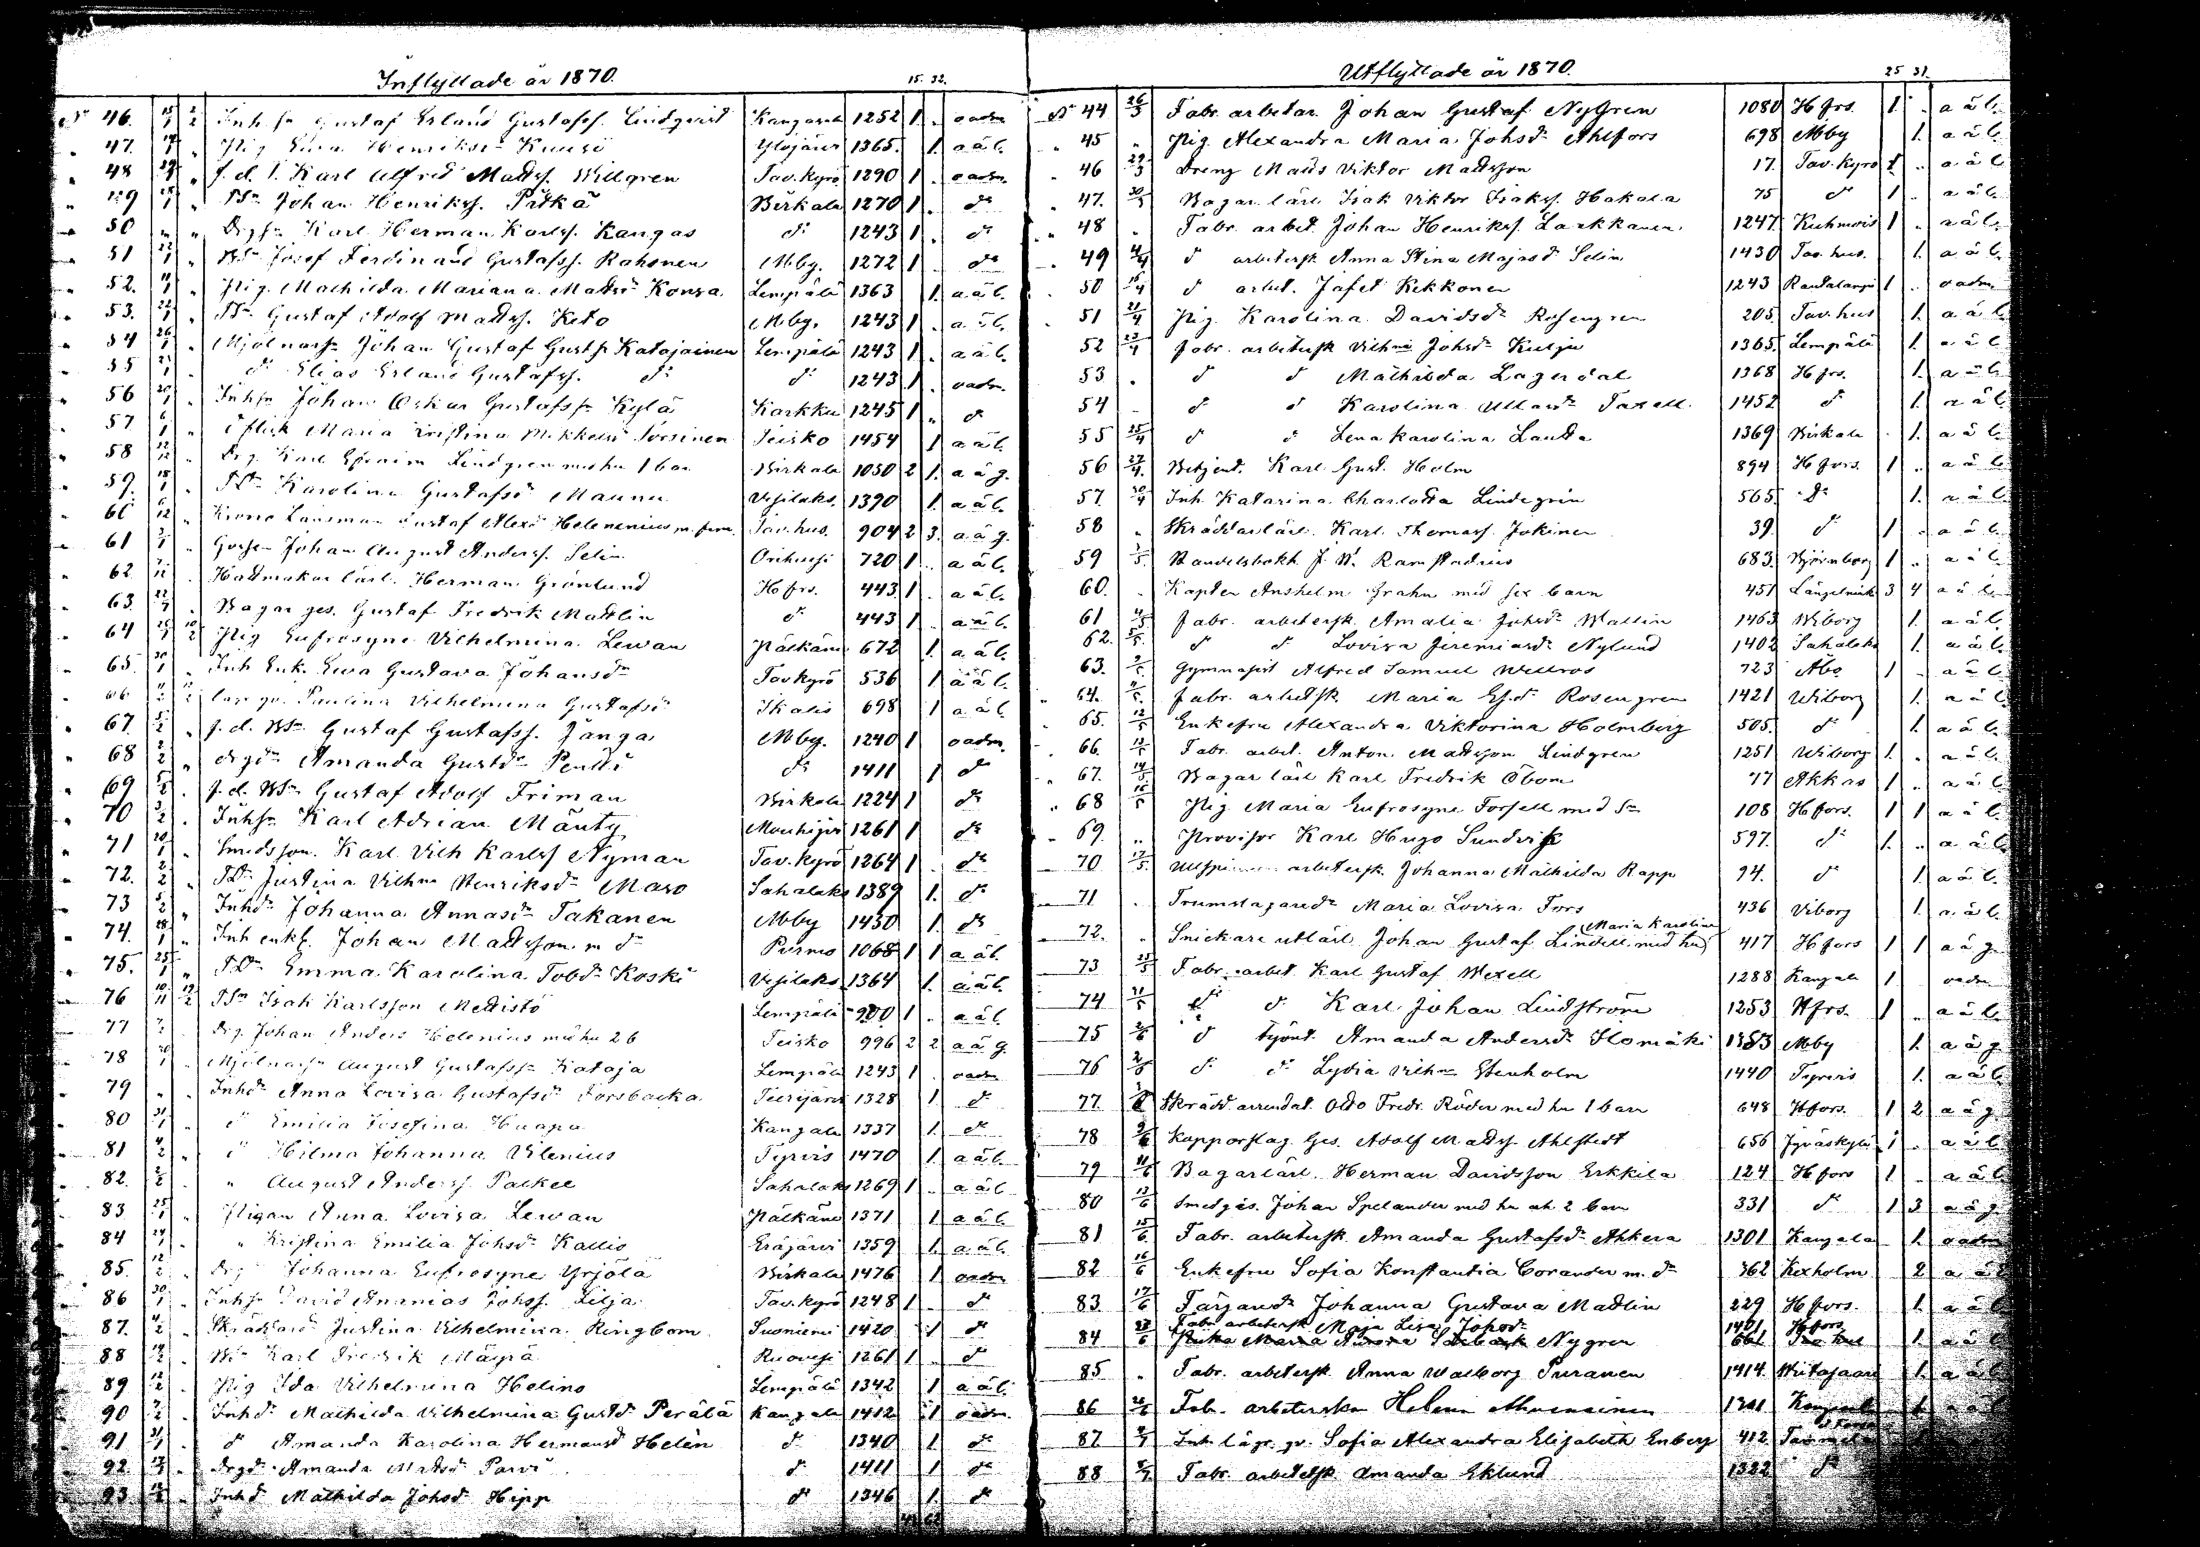 Inflyttade år 1870.
15. 32.
No 46. 15/1 2/2 Inhsn Gustaf Erland Gustafss. Lindqvist Kangasala 1252 1 . oadm.
" 47. " Pig Eva Henriksdr Kuusi Ylöjärvi 1365. 1. a ä l.
" 48 " f. d. S. Karl Alfred Matts. Willgren Tav. Kyrö 1290 1 . oadm.
" 49 " TSn Johan Henrikss. Pätkä Birkala 1270 1 . do
" 50 " " Drgsn Karl Herman Karlss. Kangas do 1243 1 . do
" 51 " BSn Josef Ferdinand Gustafss. Rahonen Mby. 1272 1 do
" 52. " Pig. Mathilda Mariana Mattsdr Konra Lempälä 1363 1. a ä l.
" 53. 22/1 " TSn Gustaf Adolf Mattss. Keto Mby. 1243 1 . a ä l.
" 54 26/1 " Mjölnarsn Johan Gustaf Gustfs Katajainen Lempälä 1243 1 . a ä l.
" 55 " do Elias Erland Gustafss. do do 1243 1 . oadm.
" 56 20/1 Inhsn Johan Oskar Gustafssn Kylä Karkku 1245 1 " do
" 57 6/1 flick Maria Kristina Mikkelsd Sorsinen Teisko 1454 1 a ä l.
" 58 12/12 Drg. Karl Efraim Lindgren med hu 1 barn Birkala 1050 2 1. a ä g.
" 59. TDr Karolina Gustafsd Maunu Vesilaks. 1390 1. a ä l.
" 60 Krono Länsman Gustaf Alexd Helenenius m. fam. Tav. hus. 904 2 3. a ä g.
" 61 " Johan August Anderss. Selin Orihvesi 720 1 . a ä l.
" 62 Hattmakar lärl. Herman Grönlund H frs. 443 1 . a ä l.
" 63. " Bagar ges. Gustaf Fredrik Mattlin do 443 1 . a ä l.
" 64 10/2 Pig Eufrosyne Vilhelmina Lewan Pälkäne 672 1. a ä l.
" 65. Inh Enk. Eva Gustava Johansdr Tavkyrö 536 1 a ä l.
" 66 Paulina Vilhelmina Gustafsd Ikalis 698 1 a ä l.
" 67. 5/2 " f. d. BSn Gustaf Gustafss. Jänga Mby. 1240 1 oadm.
" 68 2/2 " drgdr Amanda Gustdr Pentti do 1411 1 do
" 69 f. d. BSn Gustaf Adolf Friman Birkala 1224 1 do
" 70 3/2 . Inhsn Karl Adrian Mänty Mouhijär 1261 1 do
" 71 20/1 Smedsson. Karl Vilh Karlss Nyman Tav. Kyrö 1264 1 . do
" 72. 2/2 TDr Justina Vilhna Henriksdr Maso Sahalaks 1389 1. do
" 73 5/2 " Inhdr Johanna Annasdr Takanen Mby 1430 1. do
" 74. " Inh enkl. Johan Mattsson m dr Purmo 1068 1 1 a ä l.
" 75. 25/1 " TDr Emma Karolina Tobdr Koski Vesilaks 1364 1. a ä l.
" 76 10/11 19/2 TSn Isak Karlsson Mettistö Lempälä 900 1 . a ä l.
" 77 Drg. Johan Anders Helenius med hu 2 b Teisko 996 2 2 a ä g.
" 78 Mjölnarsn August Gustafssn Kataja Lempälä 1243 1 . oadm.
" 79 " Inhdr Anna Lovisa Gustafsdr Forsbacka Teerijärvi 1328 1. do
" 80 31/1 do Emilia Josefina Haapa Kangala 1337 1. do
" 81 4/2 do Hilma Johanna Vilenius Tyrvis 1470 1. a ä l.
" 82. 2/2 " August Anderss. Palkee Sahalaks 1269 1 .. a ä l
" 83 25/1 " Pigan Anna Lovisa Lewan Pälkäne 1371 1 a ä l.
" 84 " Kristina Emilia Johsdr Kallio Eräjärvi 1359 1. a ä l.
" 85. 12/2 Drg Johanna Eufrosyne Yrjölä Birkala 1476 1 oadm
" 86 30/1 Inhsn David Ananias Johss. Lilja Tav. Kyrö 1248 1 . do
" 87. 4/2 Skräddard Justina Vilhelmina Ringbom Suoniemi 1420 1 do
" 88 14/2 . BSn Karl Fredrik Mäspä Ruovesi 1261 1 .. do
" 89 12/2 . Pig Ida Vilhelmina Helino Lempälä 1342 1 a ä l.
" 90 Inhdr Mathilda Vilhelmina Gustdr Perälä Kangala 1412 1 oadm.
" 91 31/1 do Amanda Karolina Hermansd Helén do 1340 1 do
" 92. Drgdr Amanda Mattsd Parvi do 1411 1 do
" 93 Inhd Mathilda Johsd Hipp do 1346 1. do
Utflyttade år 1870.
25 31.
No 44 26/3 Fabr. arbetar. Johan Gustaf Nygren 1080 H frs. 1 . a ä l.
" 45 " Pig. Alexandra Maria Johsdr Ahlfors 698 Mby 1. a ä l.
" 46 29/3 Dreng Matts Viktor Mattsson 17. Tav. Kyro 1 .. a ä l
" 47. 30/3 Bagar lärl. Isak Viktor Isakss. Hakala 75 do 1 . a ä l.
" 48 " Fabr. arbet. Johan Henrikss. Laukkanen 1247 Kuhmois 1 . a ä l.
" 49 4/4 do arbetersk Anna Stina Majasd Selin 1430 Tav. hus. 1. a ä l.
" 50 15/4 do arbet. Jafet Kekkonen 1243 Rautalampi 1 .. oadm.
" 51 21/4 Pig. Karolina Davidsdr Rosengren 205. Tav. hus 1. a ä l.
52 23/4 fabr. arbetersk Vilhna Johsdr Kulju 1365. Lempälä 1. a ä l
53 " do do Mathilda Lagerdal 1368 H frs. 1. a ä l.
54 " do do Karolina Ullasdr Taxell. 1452 do 1. a ä l.
55 25/4 do do Lena Karolina Lauda 1369 Birkala 1. a ä l.
56 27/4 Betjent. Karl Gust. Holm 894 H fors. 1 .. a ä l.
57. 30/4 Inh. Katarina Charlotta Lindegrén 565. do 1. a ä l.
58 " Skräddarlärl. Karl Thomass. Jokinen 39. do 1 . a ä l.
59 3/5 Handelsbokh. J. W. Ramstadius 683. Björneborg 1 . a ä l.
60. . Kapten Anshelm Grahn med sex barn 451 Längelmäki 3 4 a ä l.
61 4/5 fabr. arbetersk Amalia Johsdr Wallin 1463 Wiborg 1. a ä l.
62. 5/5 do do Lovisa Jeremiasdr Nylund 1402 Sahalaks 1. a ä l.
63. 9/5 Gymnasist Alfred Samuel Wellroos 723 Åbo 1 . a ä l
64. 11/5 fabr. arbetsk Maria Gdr Rosengren 1421 Wiborg 1. a ä l
65. 12/5 Enkefru Alexandra Viktorina Holmberg 505. do 1. a ä l.
66. 13/5 Fabr. arbet. Anton Mattsson Lindgren 1251 Wiborg 1. . a ä l.
" 67. 14/5 Bagar lärl Karl Fredrik Öbom 77 Akkas 1 . a ä l.
" 68 16/5 Pig. Maria Eufrosyne Forsell med Sn 108 H fors. 1 1 a ä l.
69. " Provisor Karl Hugo Sundvik 597. do 1. .. a ä l.
70 17/5 Ullspinneri arbetersk. Johanna Mathilda Rapp 94. do 1. a ä l.
71 . Trumslagaredr Maria Lovisa Fors 436 Viborg 1. a ä l.
Maria Karolina
72. " Snickare utlärl. Johan Gustaf Lindell med hu 417 H fors 1 1 a ä g.
73 25/5 Fabr. arbet. Karl Gustaf Wexell 1288 Kangala 1 oadm.
74 31/5 do do Karl Johan Lindström 1253 H frs. 1 .. a ä l.
75 2/6 do tjönt. Amanda Andersdr Homäki 1383 Mby 1. a ä g.
76 2/6 do do Lydia Vilhna Stenholm 1440 Tyrvis 1. a ä l.
77. Skrädd. arrendat. Otto Fredr. Röden med hu 1 barn 648 H fors. 1 2 a ä g
78 9/6 Kopparslag. Ges. Adolf Matts. Ahlstedt 656 Jyväskylä 1 . a ä l.
79 11/6 Bagarlärl. Herman Davidsson Erkkila 124 H fors 1 . a ä l.
80 13/6 Smedges. Johan Spelander med hu och 2 barn 331 do 1 3 a ä g.
81 15/6 Fabr. arbetersk. Amanda Gustafsdr Ahkera 1301 Kangala 1. oadm
82 16/6 Enkefru Sofia Konstantia Corander m. dr 362 Kexholm 2 a ä l
83. 17/6 Färgaredr Johanna Gustava Matlin 229 H fors. 1. a ä l
Fabr arbetersk Maja Lisa Johsdr 1401 H fors
84 Maria Aurora Nygren 661 Tav. hus 1. a ä l
85 " Fabr. arbetersk. Anna Walborg Puranen 1414. Wiitasaari 1. a ä l
86 Fab. arbeterska Helena 1301 a ä l
87 Inh lägr. gv. Sofia Alexandra Elisabeth Enberg 412.
88 Fabr. arbetersk. Amanda Eklund 1322 do